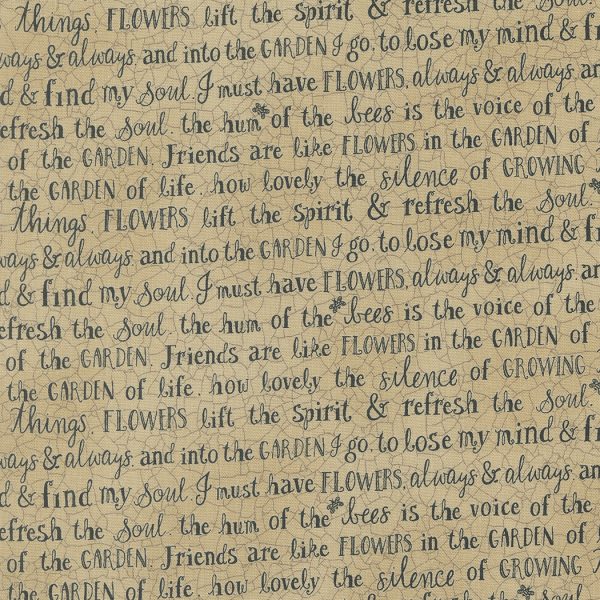 things. FLOWERS lift the spirit & refresh the soul
always & always. and into the GARDEN I go, to lose my mind &
& find my soul. I must have FLOWERS, always & always. an
refresh the soul. the hum of the bees is the voice of the
of the GARDEN. Friends are like FLOWERS in the GARDEN of
the GARDEN of life. how lovely the silence of GROWING
things. FLOWERS lift the spirit & refresh the soul.
always & always. and into the GARDEN I go, to lose my mind &
d & find my soul. I must have FLOWERS, always & always. an
refresh the soul. the hum of the bees is the voice of the
of the GARDEN. Friends are like FLOWERS in the GARDEN of
the GARDEN of life. how lovely the silence of GROWING
things. FLOWERS lift the spirit & refresh the soul.
ways & always. and into the GARDEN I go, to lose my mind &
d & find my soul. I must have FLOWERS, always & always. an
refresh the soul the hum of the bees is the voice of the
of the GARDEN. Friends are like FLOWERS in the GARDEN of
the GARDEN of life. how lovely the silence of GROWING